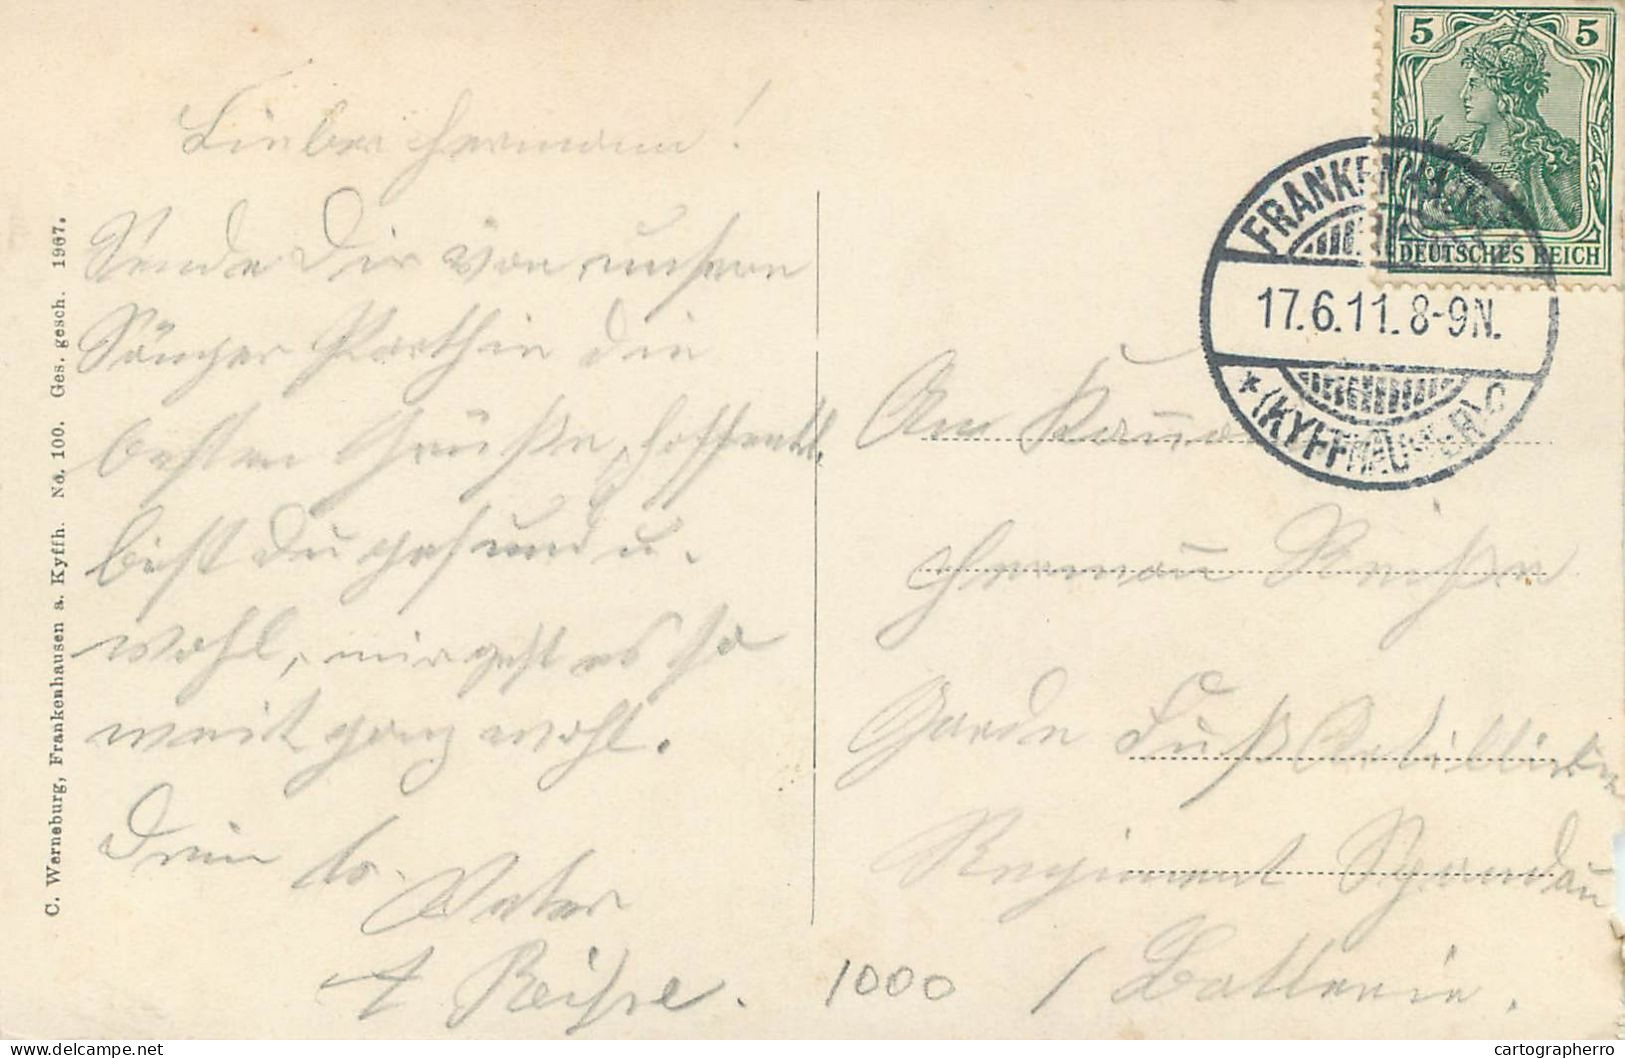 Lieber Hermann!
Sende Dir von unsern
Sänger die
besten Grüße, hoffentl.
bist Du gesund u.
wohl, mir geht es so
weit ganz wohl.
Dein lb.
Vater
A Reiße.
C. Werneburg, Frankenhausen a. Kyffh. No. 100. Ges. gesch. 1907.
5 5
DEUTSCHES REICH
FRANKENHAUSEN
17.6.11. 8-9N.
* (KYFFHÄUSER) C
An Kano
Hermañ Reiße
Garde Fuß Artillerie
Regiment Spandau
1 Batterie.
1000
cartographerro
© www.delcampe.net